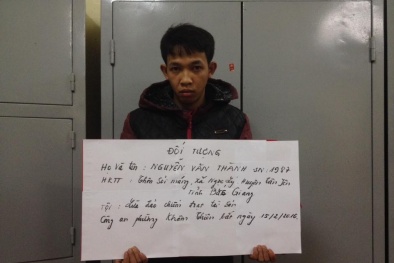 ĐỐI TƯỢNG
Họ và tên : NGUYỄN VĂN THÀNH SN 1987
HKTT : Thôn Sỏi , Xã , Huyện Yên
Tỉnh Bắc Giang
Tội : Lừa đảo chiếm đoạt tài sản
Công an phường Khâm Thiên bắt ngày 15/2/2016